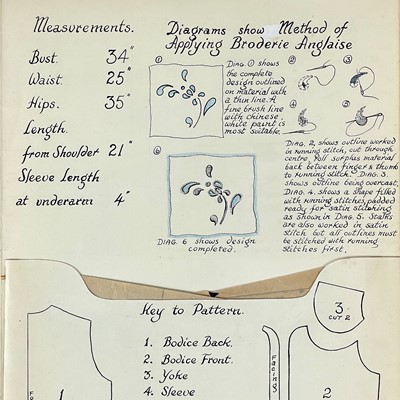 Measurements.
Bust. 34"
Waist. 25"
Hips. 35"
Length.
from Shoulder 21"
Sleeve Length
at underarm 4"
Diagrams show Method of
Applying Broderie Anglaise
1
DIAG. 1 shows
the complete
design outlined
on material with
a thin line. A
fine brush line
with chinese
white paint is
most suitable.
2
3
4
5
DIAG. 2, shows outline worked
in running stitch, cut through
centre. Pull surplus material
back between finger & thumb
to running stitch. DIAG. 3.
shows outline being overcast.
DIAG. 4. shows a shape filled
with running stitches, padded
ready for satin stitching
as shown in DIAG. 5. Stalks
are also worked in satin
stitch but all outlines must
be stitched with running
stitches first.
6
DIAG. 6 shows design
completed.
Key to Pattern.
1. Bodice Back.
2. Bodice Front.
3. Yoke
4. Sleeve
1
Facing
3
CUT 2
2